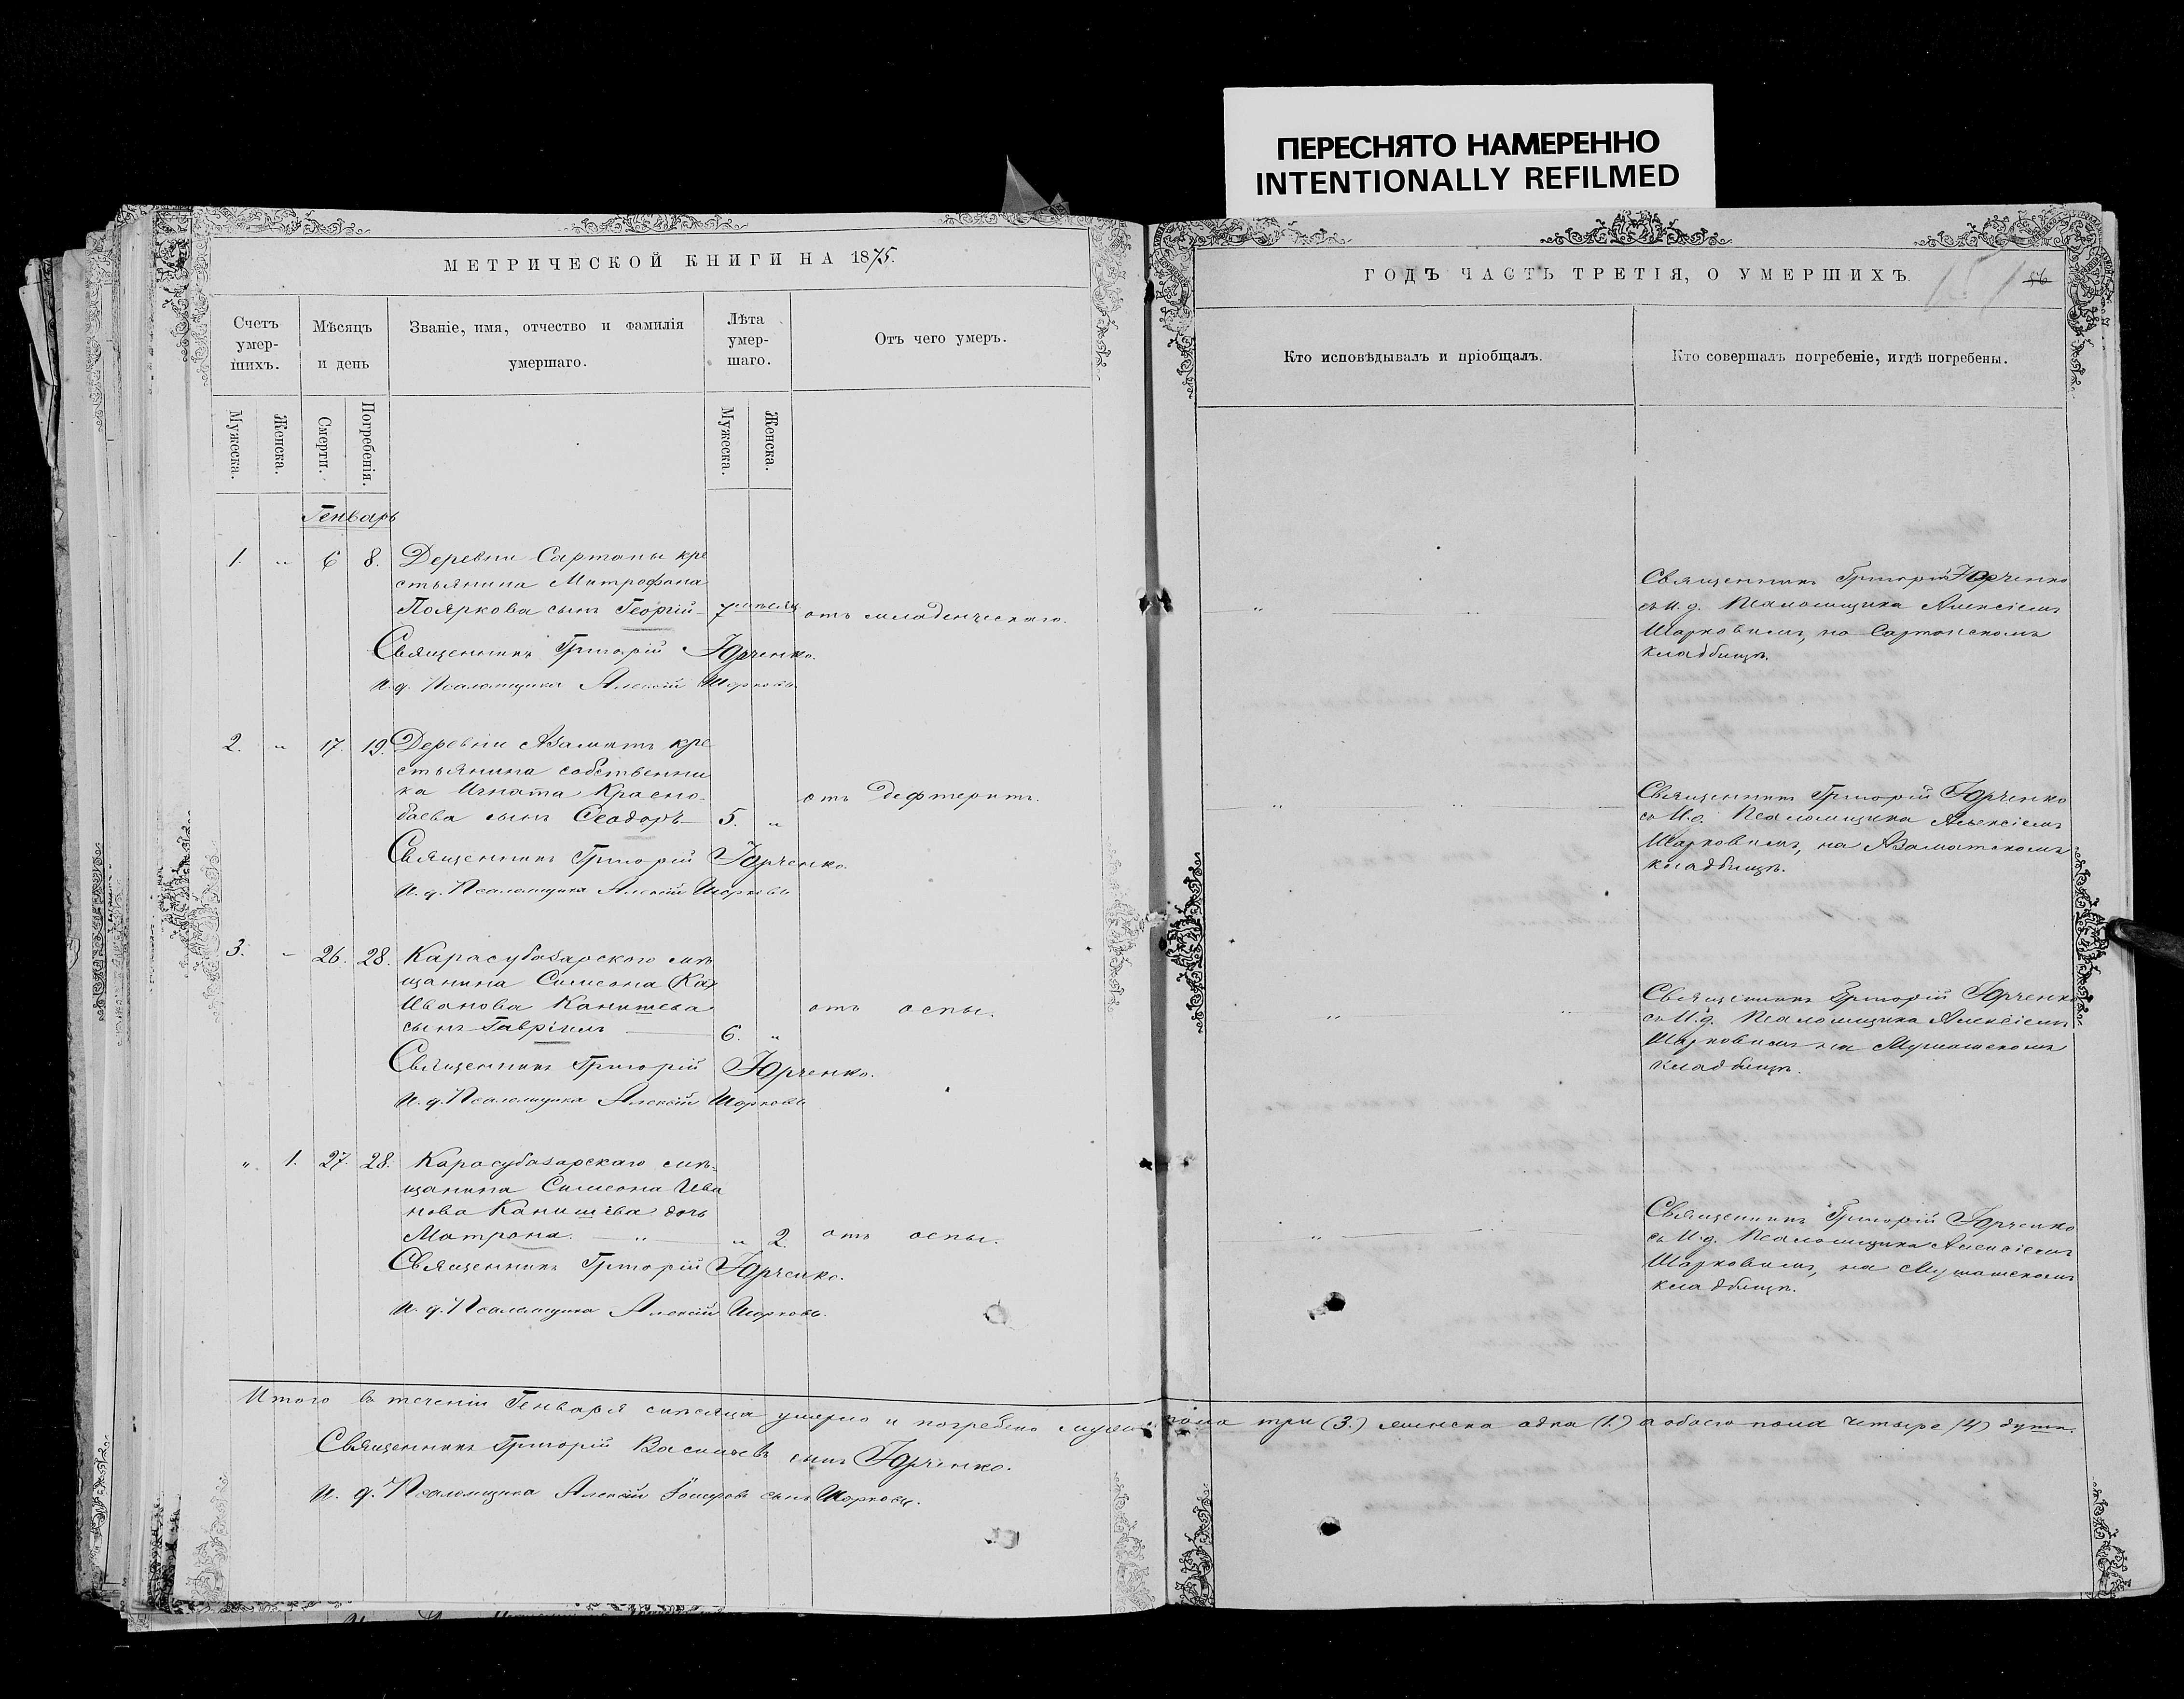 ПЕРЕСНЯТО НАМЕРЕННО
INTENTIONALLY REFILMED
МЕТРИЧЕСКОЙ КНИГИ НА 1875.
Счетъ умер- шихъ.
Мѣсяцъ и день
Званіе, имя, отчество и фамилія умершаго.
Лѣта умер- шаго.
Отъ чего умеръ.
Мужеска.
Женска.
Смерти.
Погребенія.
Мужеска.
Женска.
Генварь
1. " 6 8. Деревни Сартаны кре
стьянина Митрофана
Пояркова сынъ Георгій 7 мѣсяц отъ младенческаго.
Священникъ Григорій Юрченко.
И. д. Псаломщика Алексій Шарковъ
2. " 17. 19. Деревни Азаматъ кре
стьянина собственни
ка Игната Красно-
баева сынъ Ѳеодоръ 5. " отъ дефтеритъ.
Священникъ Григорій Юрченко.
И. д. Псаломщика Алексій Шарковъ
3. - 26. 28. Карасубазарского мѣ
щанина Симеона Ка
Иванова Канишева
сынъ Гавріилъ 6. " отъ оспы.
Священникъ Григорій Юрченко.
И. д. Псаломщика Алексій Шарковъ
" 1. 27. 28. Карасубазарскаго мѣ-
щанина Симеона Ива
нова Канишева дочь
Матрона. " " 2. отъ оспы.
Священникъ Григорій Юрченко.
И. д. Псаломщика Алексій Шарковъ.
Итого въ теченіи Генваря мѣсяца умерло и погребено муже. пола три (3.) женска одна (1.) а обоего пола четыре (4) душъ.
Священникъ Григорій Васильевъ сынъ Юрченко.
И. д. Псаломщика Алексій сынъ Шарковъ.
ГОДЪ ЧАСТЬ ТРЕТІЯ, О УМЕРШИХЪ.
56
Кто исповѣдывалъ и пріобщалъ.
Кто совершалъ погребеніе, и гдѣ погребены.
Священникъ Григорій Юрченко
съ И. д. Псаломщика Алексіемъ
Шарковымъ, на Сартанскомъ
кладбищѣ.
Священникъ Григорій Юрченко
съ И. д. Псаломщика Алексіемъ
Шарковымъ, на Азаматскомъ
кладбищѣ.
Священникъ Григорій Юрченко
съ И. д. Псаломщика Алексіемъ
Шарковымъ на Мушашскомъ
кладбищѣ.
Священникъ Григорій Юрченко
съ И. д. Псаломщика Алексіемъ
Шарковымъ, на Мушашскомъ
кладбищѣ.